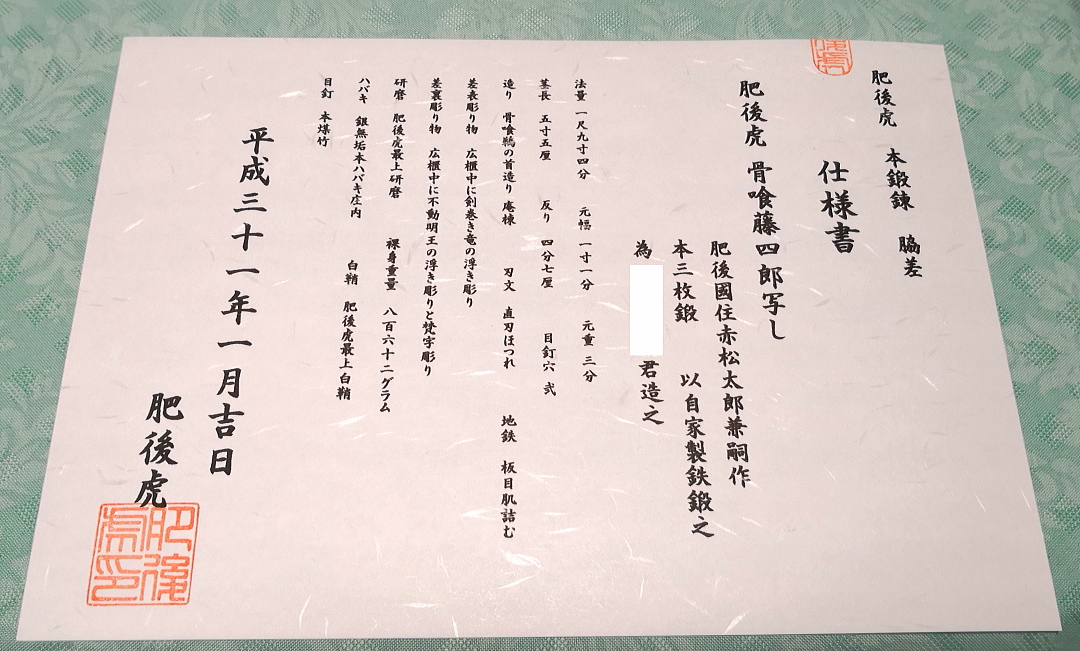 肥後虎 本鍛錬 脇差
仕様書
肥後虎 骨喰藤四郎写し
肥後國住赤松太郎兼嗣作
本三枚鍛 以自家製鉄鍛之
為 君造之
法量 一尺九寸四分 元幅 一寸一分 元重 三分
茎長 五寸五厘 反り 四分七厘 目釘穴 弐
造り 骨喰鵜の首造り 庵棟 刃文 直刃ほつれ 地鉄 板目肌詰む
差表彫り物 広樋中に剣巻き竜の浮き彫り
差裏彫り物 広樋中に不動明王の浮き彫りと梵字彫り
研磨 肥後虎最上研磨 裸身重量 八百六十二グラム
ハバキ 銀無垢本ハバキ庄内 白鞘 肥後虎最上白鞘
目釘 本煤竹
平成三十一年一月吉日
肥後虎